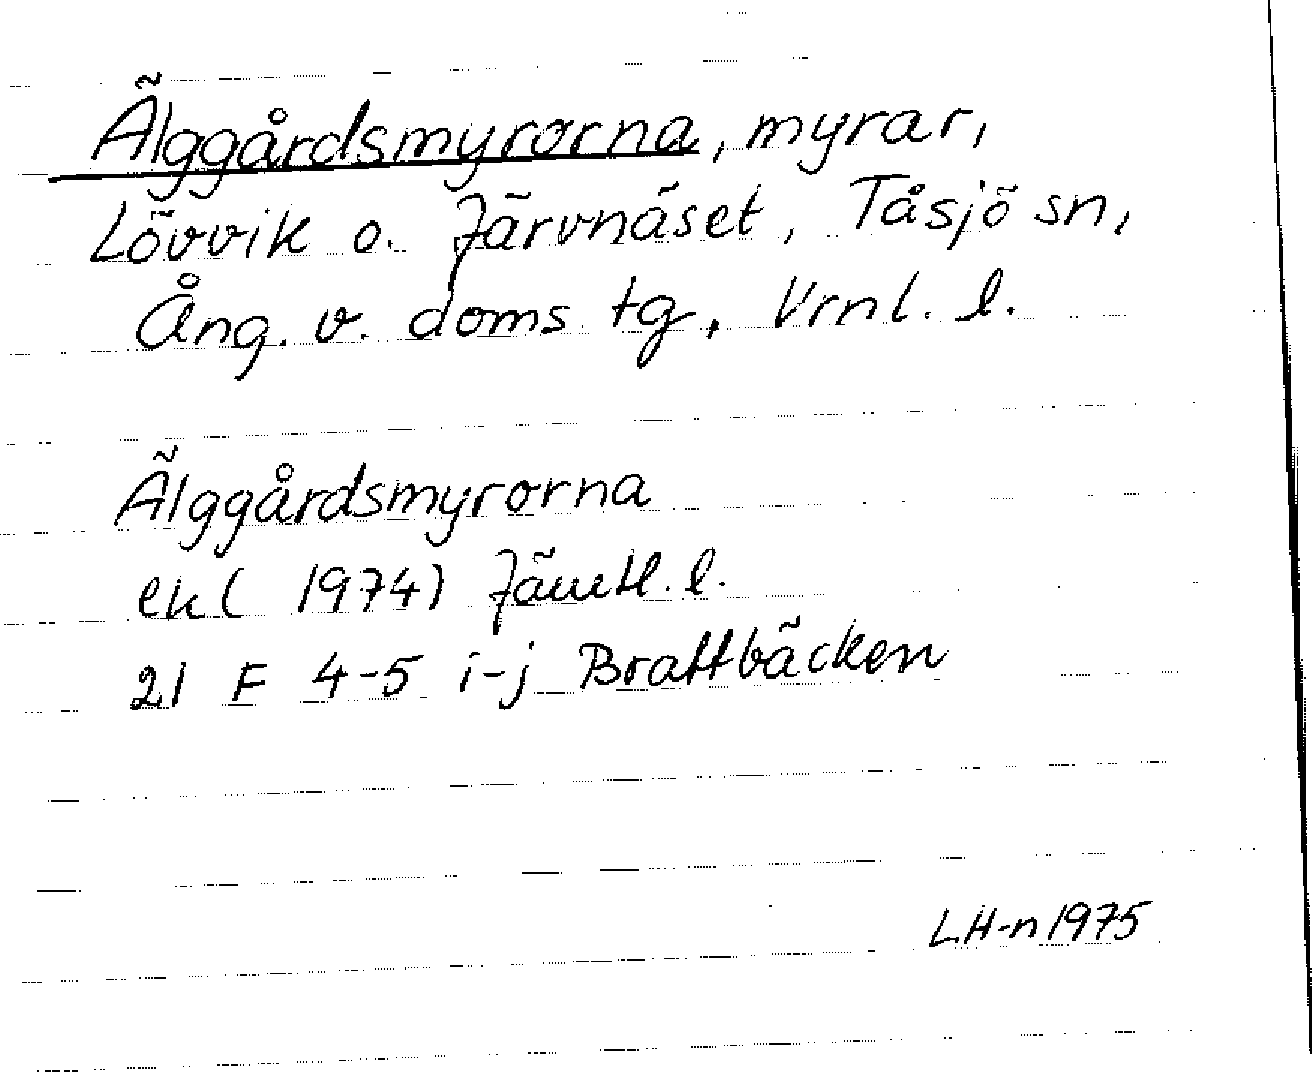 Älggårdsmyrorna, myrar,
Lövvik o. Järvnäset, Tåsjö sn,
Ång. v. doms tg, Vrnl. l.
Älggårdsmyrorna
ek (1974) Jämtl. l.
21 F 4-5 i-j Brattbäcken
LH-n 1975